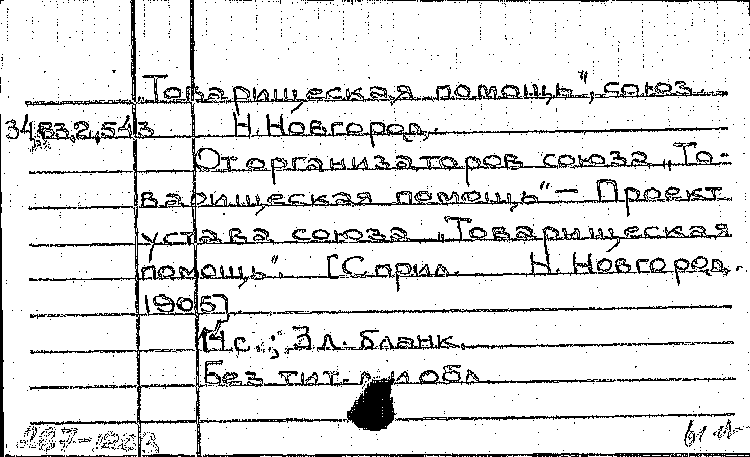 „Товарищеская помощь", союз.
Н. Новгород.
От организаторов союза „То-
варищеская помощь" — Проект
устава союза „Товарищеская
помощь". [С прил. Н. Новгород.
1905]
14 с.; 3 л. бланк.
Без тит. л. и обл.